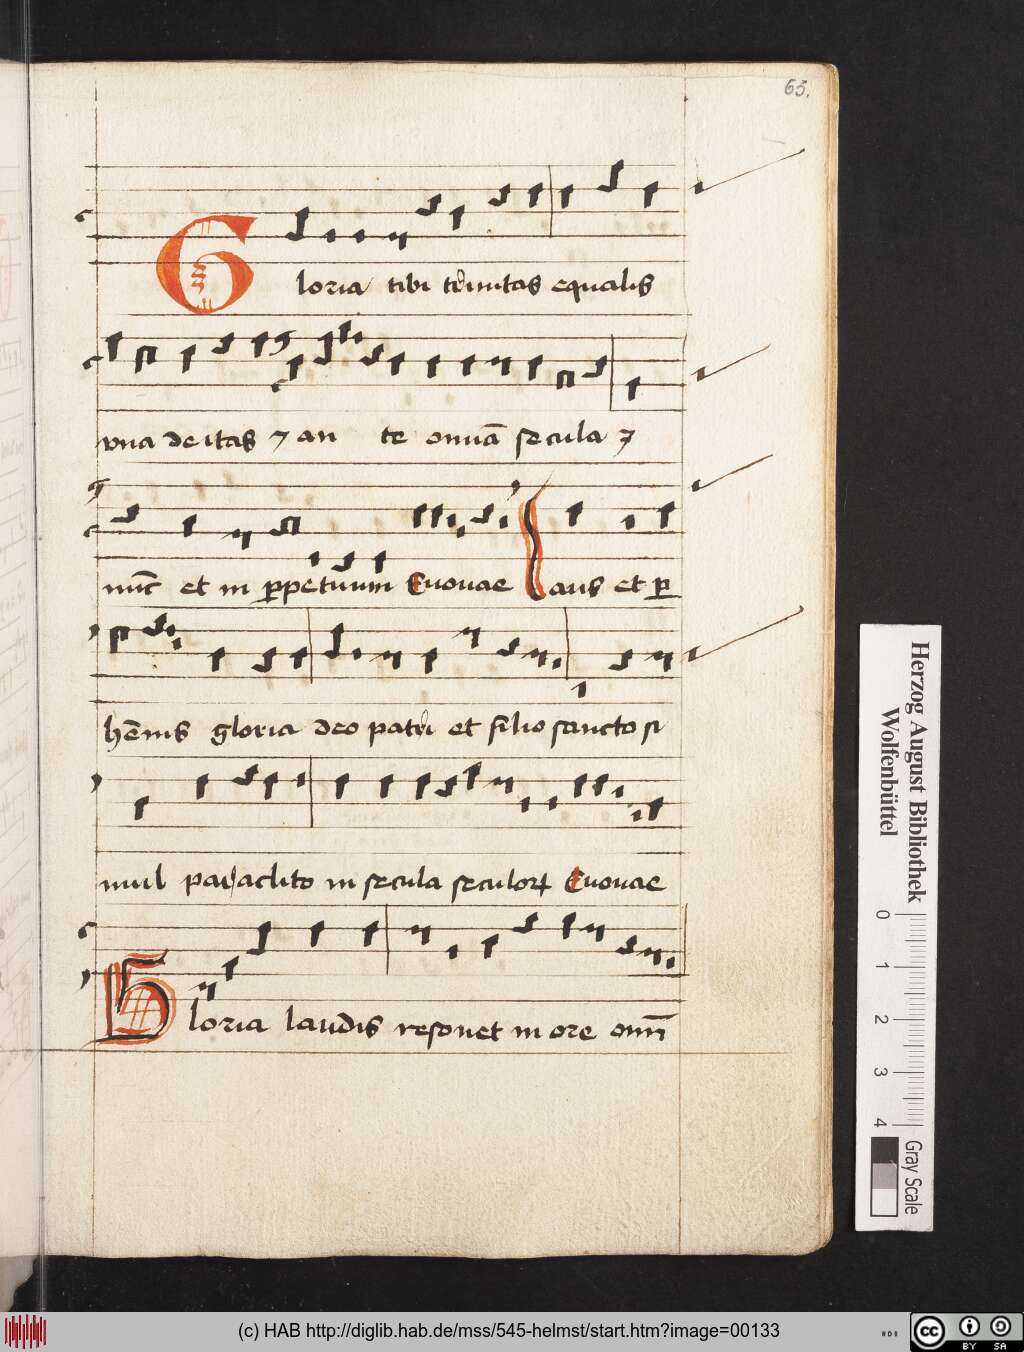 65.
Gloria tibi trinitas equalis
vna deitas ⁊ an te om̄a secula ⁊
nūc et in perpetuum Euouae Laus et per
hēnis gloria deo patri et filio sancto si
mul paraclito in secula seculorꝝ Euouae
Gloria laudis resonet in ore om̄
Herzog August Bibliothek
Wolfenbüttel
0 1 2 3 4
Gray Scale
(c) HAB http://diglib.hab.de/mss/545-helmst/start.htm?image=00133
cc BY SA